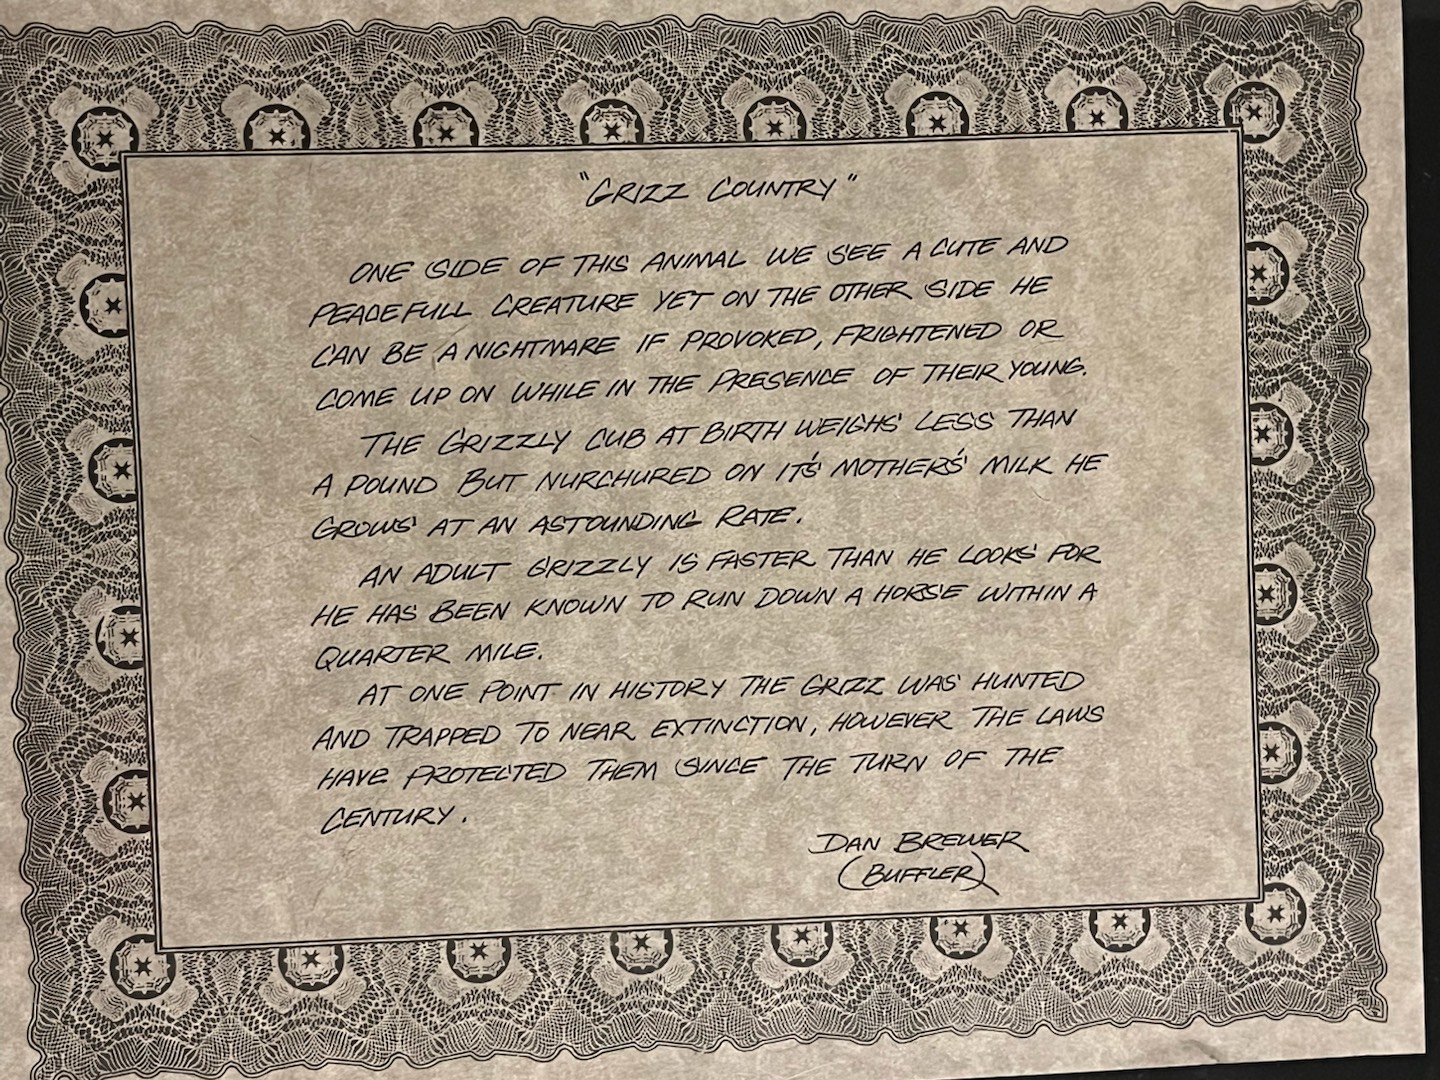 "GRIZZ COUNTRY"
ONE SIDE OF THIS ANIMAL WE SEE A CUTE AND
PEACEFULL CREATURE YET ON THE OTHER SIDE HE
CAN BE A NIGHTMARE IF PROVOKED, FRIGHTENED OR
COME UP ON WHILE IN THE PRESENCE OF THEIR YOUNG.
THE GRIZZLY CUB AT BIRTH WEIGHS LESS THAN
A POUND BUT NURCHURED ON IT'S MOTHER'S MILK HE
GROWS AT AN ASTOUNDING RATE.
AN ADULT GRIZZLY IS FASTER THAN HE LOOKS FOR
HE HAS BEEN KNOWN TO RUN DOWN A HORSE WITHIN A
QUARTER MILE.
AT ONE POINT IN HISTORY THE GRIZZ WAS HUNTED
AND TRAPPED TO NEAR EXTINCTION, HOWEVER THE LAWS
HAVE PROTECTED THEM SINCE THE TURN OF THE
CENTURY.
DAN BREWER
(BUFFLER)